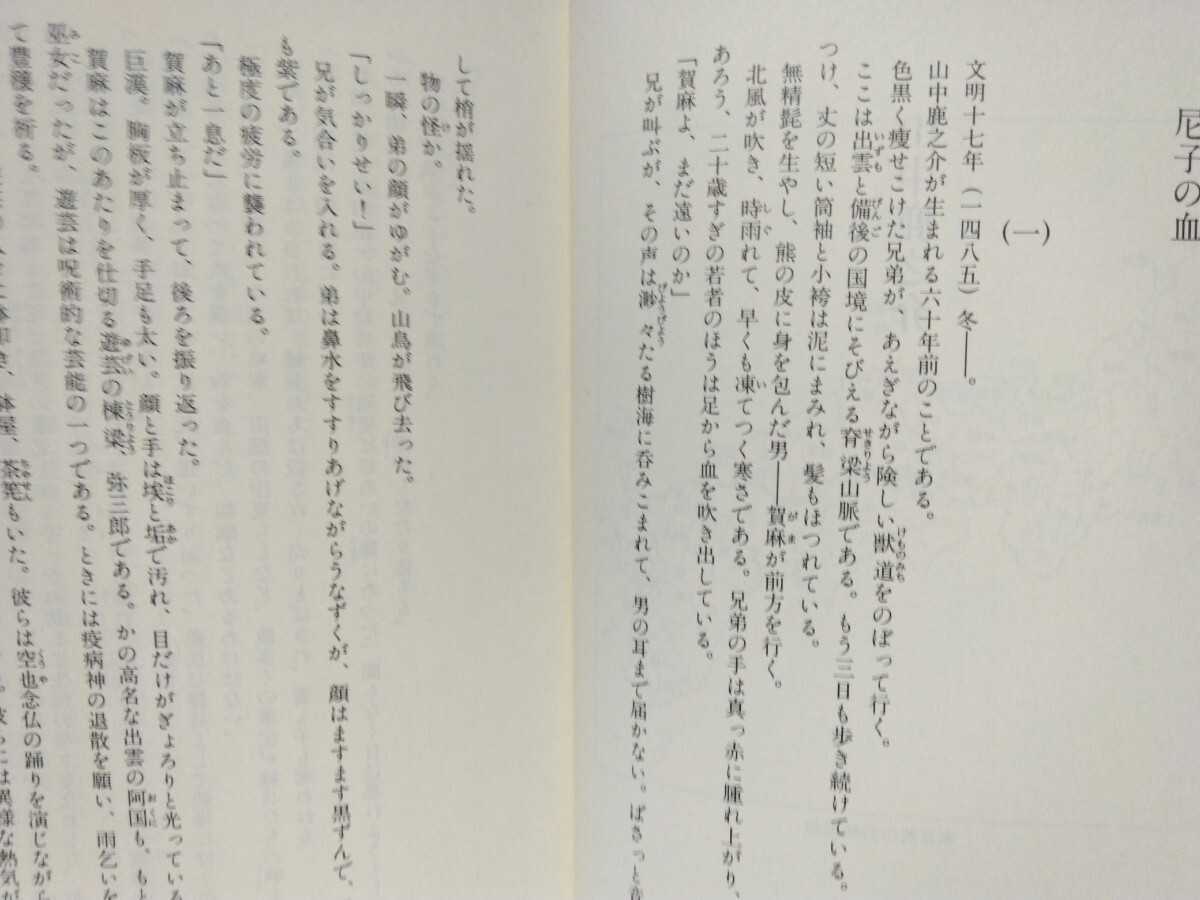 尼子の血
(一)
文明十七年(一四八五)冬――。
山中鹿之介が生まれる六十年前のことである。
色黒く痩せこけた兄弟が、あえぎながら険しい獣道をのぼって行く。
ここは出雲と備後の国境にそびえる脊梁山脈である。もう三日も歩き続けている。
つけ、丈の短い筒袖と小袴は泥にまみれ、髪もほつれている。
無精髭を生やし、熊の皮に身を包んだ男――賀麻が前方を行く。
北風が吹き、時雨れて、早くも凍てつく寒さである。兄弟の手は真っ赤に腫れ上がり、
あろう、二十歳すぎの若者のほうは足から血を吹き出している。
「賀麻よ、まだ遠いのか」
兄が叫ぶが、その声は渺々たる樹海に呑みこまれて、男の耳まで届かない。ばさっと音
して梢が揺れた。
物の怪か。
一瞬、弟の顔がゆがむ。山鳥が飛び去った。
「しっかりせい!」
兄が気合いを入れる。弟は鼻水をすすりあげながらうなずくが、顔はますます黒ずんで、
も紫である。
極度の疲労に襲われている。
「あと一息だ」
賀麻が立ち止まって、後ろを振り返った。
巨漢。胸板が厚く、手足も太い。顔と手は埃と垢で汚れ、目だけがぎょろりと光っている
賀麻はこのあたりを仕切る遊芸の棟梁、弥三郎である。かの高名な出雲の阿国も、もと
巫女だったが、遊芸は呪術的な芸能の一つである。ときには疫病神の退散を願い、雨乞いを
て豊穣を祈る。
鉢屋、茶筅もいた。彼らは空也念仏の踊りを演じながら
には異様な熱気が